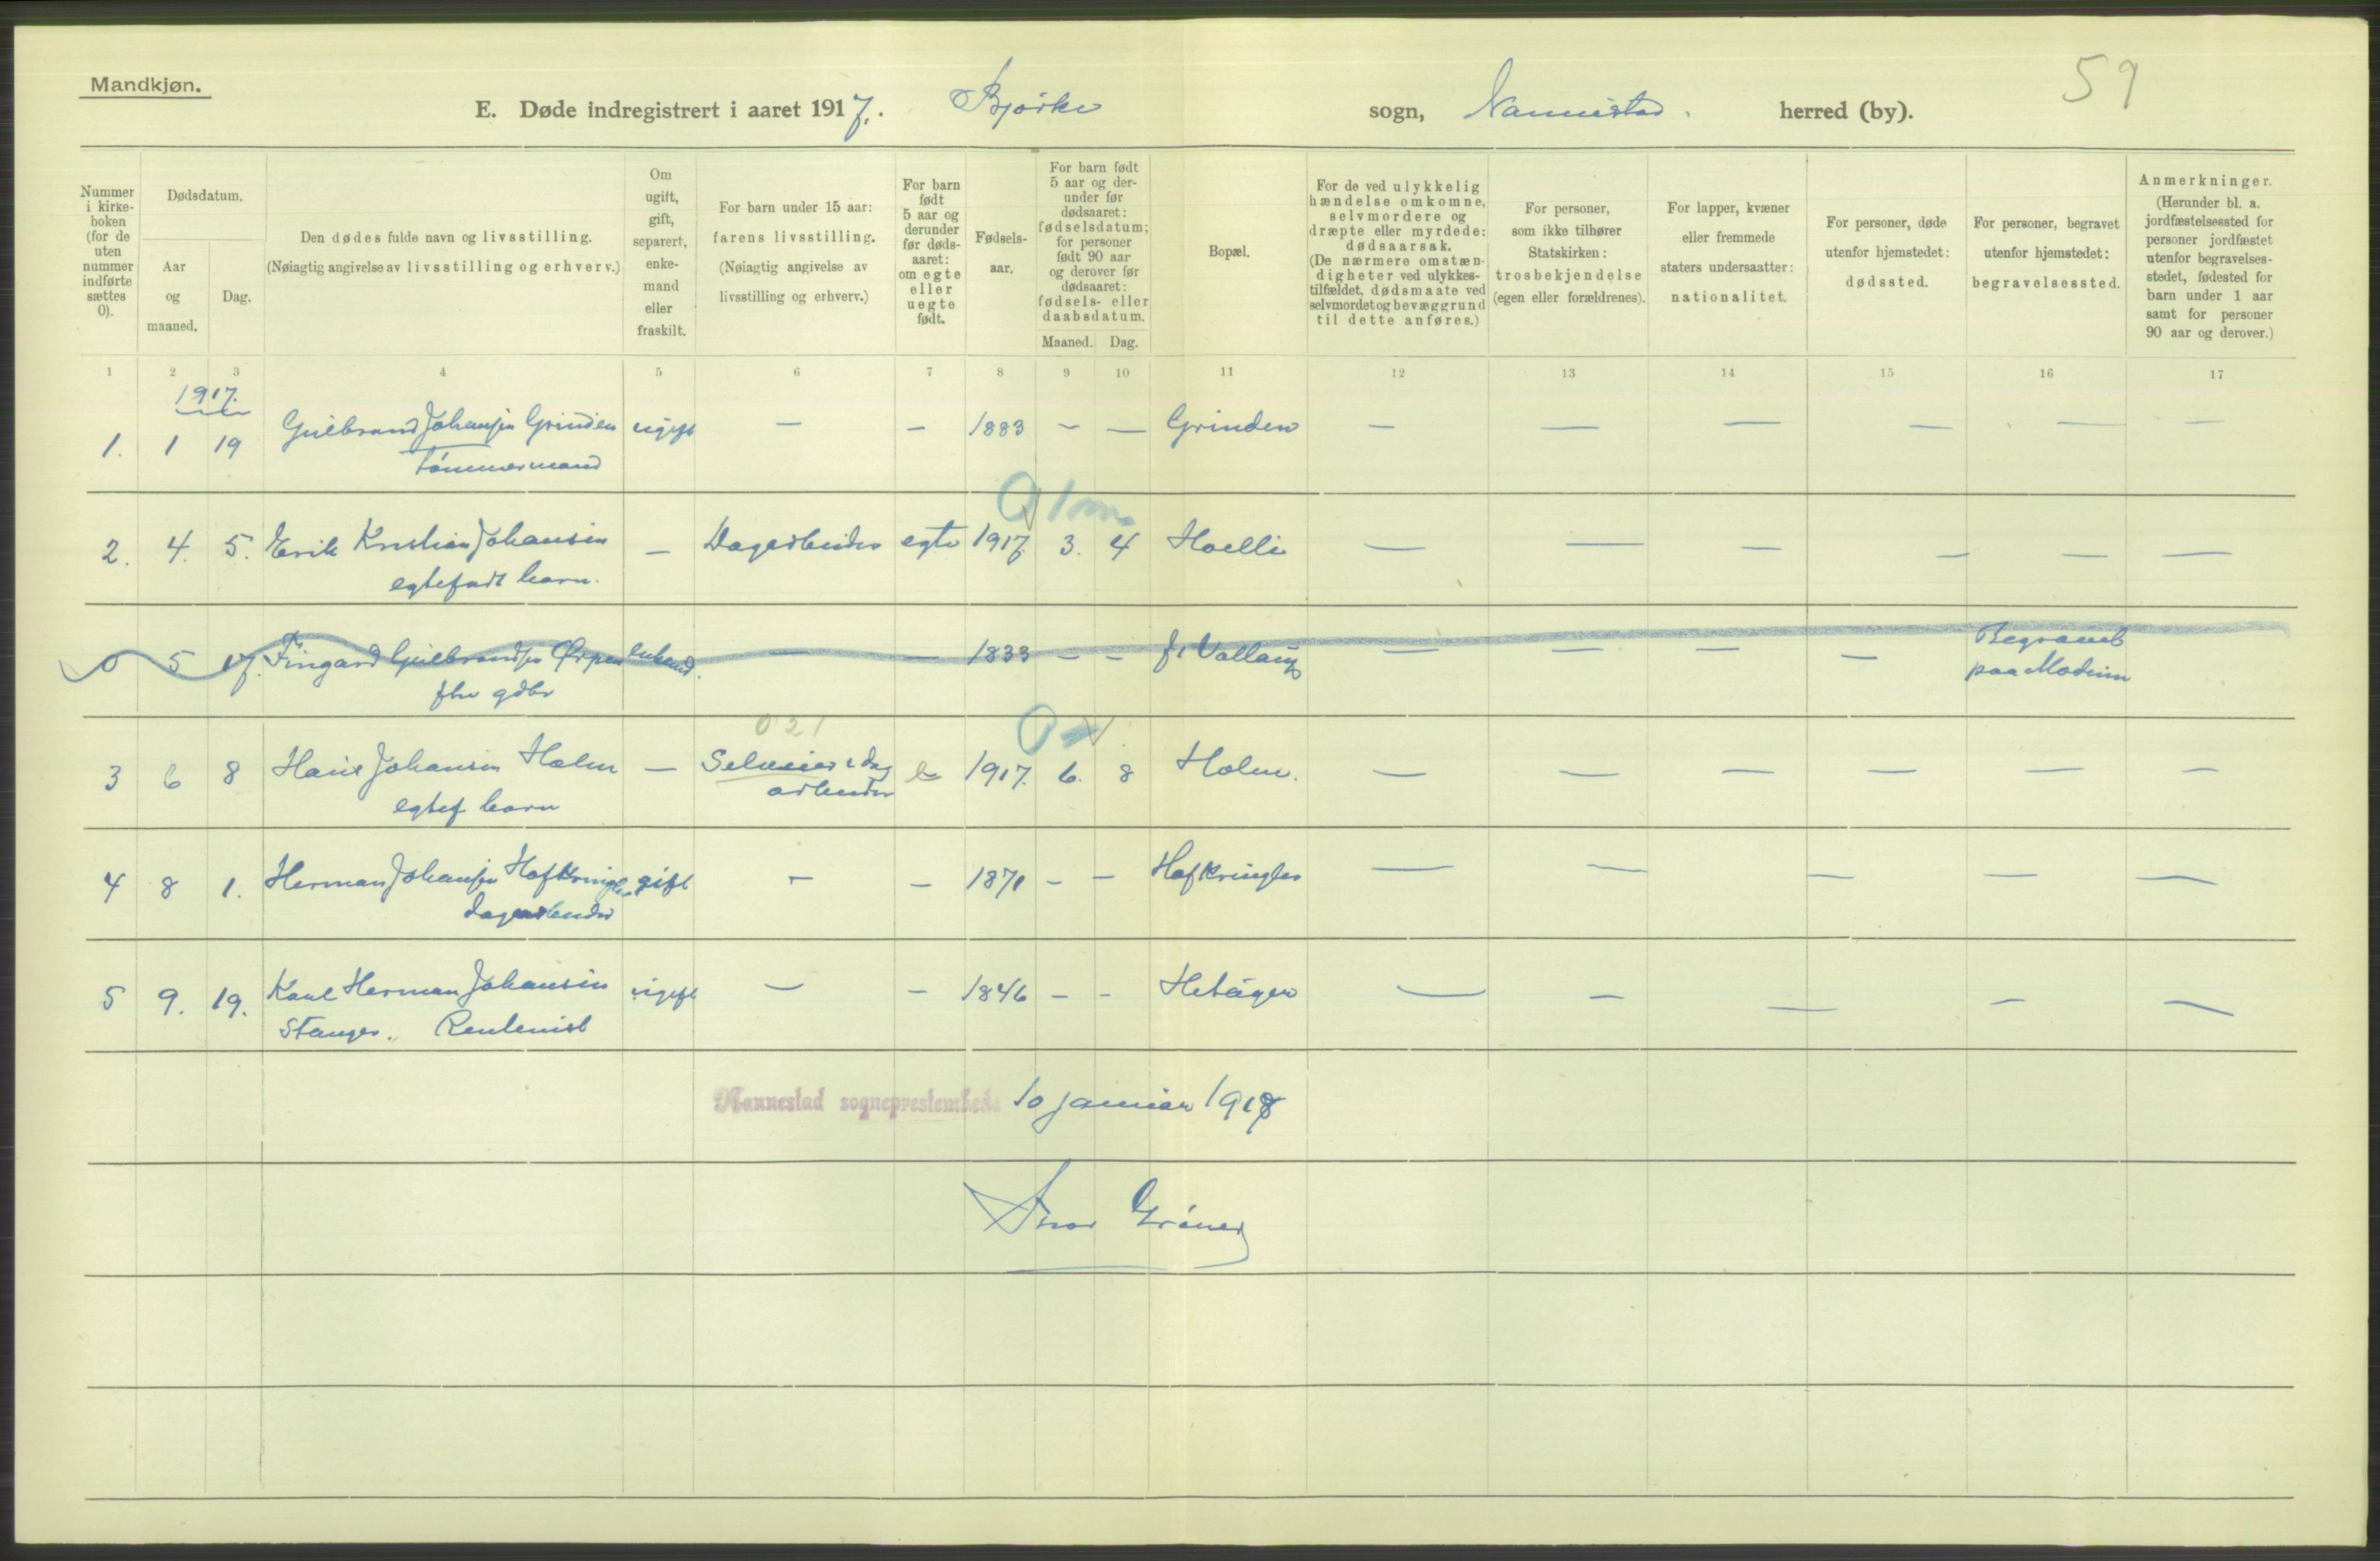 Mandkjøn.
59
E. Døde indregistrert i aaret 1917. Bjørke sogn, Nannestad. herred (by).
Nummer i kirke- boken (for de uten nummer indførte sættes 0).
Dødsdatum.
Aar og maaned.
Dag.
Den dødes fulde navn og livsstilling.
(Nøiagtig angivelse av livsstilling og erhverv.)
Om ugift, gift, separert, enke- mand eller fraskilt.
For barn under 15 aar:
farens livsstilling.
(Nøiagtig angivelse av
livsstilling og erhverv.)
For barn født 5 aar og derunder før døds- aaret: om egte eller uegte født.
Fødsels- aar.
For barn født 5 aar og der- under før dødsaaret: fødselsdatum; for personer født 90 aar og derover før dødsaaret: fødsels- eller daabsdatum.
Maaned. Dag.
Bopæl.
For de ved ulykkelig hændelse omkomne, selvmordere og dræpte eller myrdede: dødsaarsak. (De nærmere omstæn- digheter ved ulykkes- tilfældet, dødsmaate ved selvmordet og bevæggrund til dette anføres.)
For personer, som ikke tilhører Statskirken: trosbekjendelse (egen eller forældrenes).
For lapper, kvæner eller fremmede staters undersaatter: nationalitet.
For personer, døde utenfor hjemstedet: dødssted.
For personer, begravet utenfor hjemstedet: begravelsessted.
Anmerkninger. (Herunder bl. a. jordfæstelsessted for personer jordfæstet utenfor begravelses- stedet, fødested for barn under 1 aar samt for personer 90 aar og derover.)
1 2 3 4 5 6 7 8 9 10 11 12 13 14 15 16 17
1917.
1. 1 19 Gulbrand Johansen Grinden ugift — — 1883 — — Grinden — — — — — —
Tømmermand
0 1 m
2. 4. 5. Erik Kristian Johansen — Dagarbeider egte 1917. 3. 4 Hoelli — — — — — —
egtefødt barn.
0 5 17. Fingard Gulbrandsen Ørpen enkemd. — — 1833 — — f. Vollaug — — — — Begravet
fhv gdbr paa Modum
021 0
3 6 8 Hans Johansen Holm — Selveier & dag e 1917. 6. 8 Holm. — — — — — —
egtef barn arbeider
4 8 1. Herman Johansen Hofkringla gift — — 1871 — — Hofkringler — — — — —
dagarbeider
5 9. 19. Karl Herman Johansen ugift — — 1846 — — Hetager — — — — —
Stanger. Rentenist
Nannestad sogneprestembede 10 januar 1918
Gróner